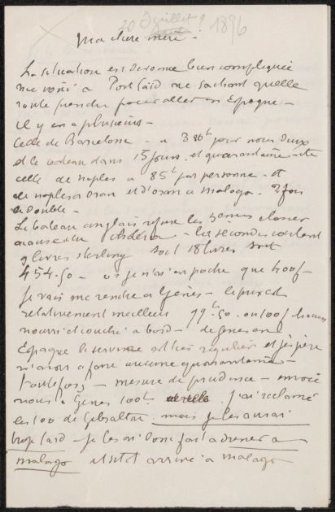 20 Juillet ? 1896
Ma chère mère -
La situation est devenue bien compliquée
me voici à Port Saïd ne sachant quelle
route prendre pour aller en Espagne -
il y en a plusieurs -
Celle de Barcelone - a 3 pour nous deux
et le bateau dans 15 jours, et quarantaine
celle de Naples a 85f par personne - et
de Naples Oran et d'Oran à Malaga. 3 fois
le double -
Le bateau anglais refuse les 3emes classes
à cause du choléra - les secondes coûtent
9 livres sterling soit 18 livres soit
454-50 - et je n'ai en poche que 400f -
Je vais me rendre à Gênes - le prix est
relativement meilleur 99f-50 - ou 100f
nourri et couché à bord - de Gênes en
Espagne le service est très régulier et j'espère
n'avoir à faire aucune quarantaine -
Toutefois - mesure de prudence - envoie
nous à Gênes 100f - J'ai réclamé
les 100 de Gibraltar, mais je les aurai
trop tard - je les ai donc fait adresser à
Malaga et sitôt arrivé à Malaga